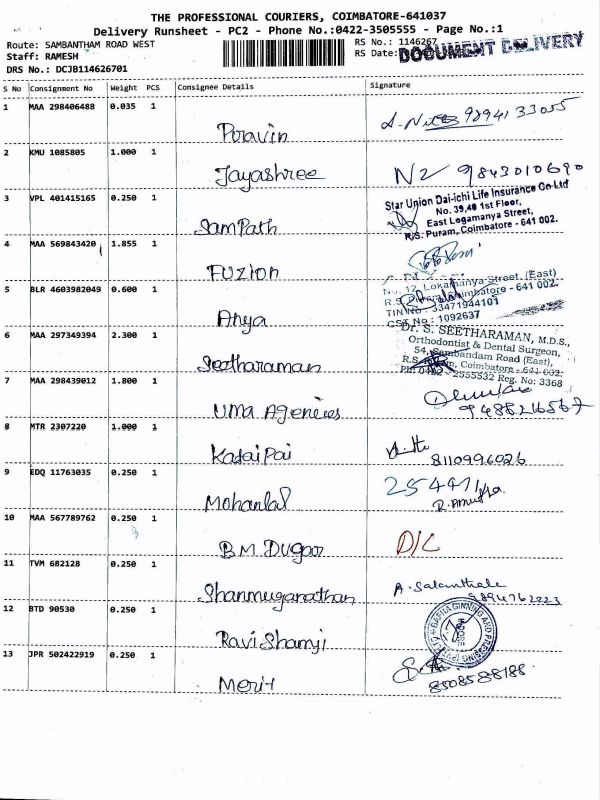 THE PROFESSIONAL COURIERS, COIMBATORE-641037
Delivery Runsheet - PC2 - Phone No.:0422-3505555 - Page No.:1
Route: SAMBANTHAM ROAD WEST RS No.: 1146267
Staff: RAMESH RS Date: DOCUMENT DELIVERY
DRS No.: DCJB114626701
S No Consignment No Weight PCS Consignee Details Signature
1 MAA 298406488 0.035 1
Poravin 9894133055
2 KMU 1085805 1.000 1
Jayashree N2 9843010690
3 VPL 401415165 0.250 1 Star Union Dai-ichi Life Insurance Co Ltd
No. 39,40 1st Floor,
East Logamanya Street,
SamPath R.S. Puram, Coimbatore - 641 002.
4 MAA 569843420 1.855 1
FUZION
No. 12, Lokamanya Street, (East)
5 BLR 4603982049 0.600 1 Coimbatore - 641 002.
TIN No : 33471944101
Anya CST No : 1092637
Dr. S. SEETHARAMAN, M.D.S.,
6 MAA 297349394 2.300 1 Orthodontist & Dental Surgeon,
54, Sambandam Road (East),
R.S. Puram, Coimbatore - 641 002.
Seetharaman Ph: 0422 - 2555532 Reg. No: 3368
7 MAA 298439012 1.800 1
UMA Agencies
8 MTR 2307220 1.000 1
KasaiPai 8110996026
9 EDQ 11763035 0.250 1
Mohanlal 25447
10 MAA 567789762 0.250 1
B.M. Dugar D/C
11 TVM 682128 0.250 1
Shanmuganathan
12 BTD 90530 0.250 1
GINNING AND PRESSING
Ravi Shamji
13 JPR 502422919 0.250 1
Merit 8508588188